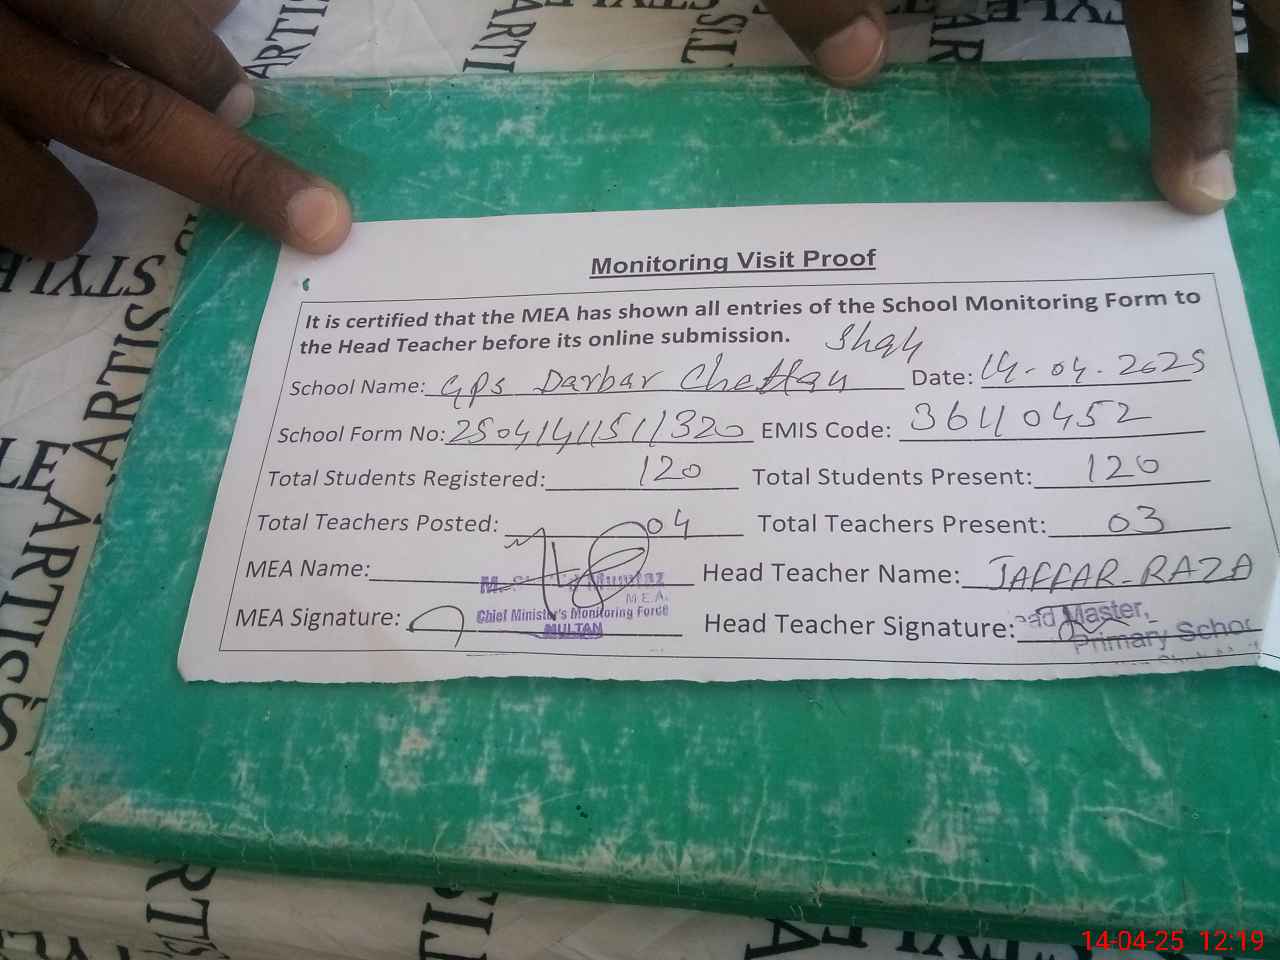 Monitoring Visit Proof
It is certified that the MEA has shown all entries of the School Monitoring Form to
the Head Teacher before its online submission. Shah
School Name: GPS Darbar Chettan Date: 14-04-2025
School Form No: 25041411511320 EMIS Code: 36110452
Total Students Registered: 120 Total Students Present: 120
Total Teachers Posted: 04 Total Teachers Present: 03
MEA Name: Head Teacher Name: JAFFAR-RAZA
M.E.A.
MEA Signature: Chief Minister's Monitoring Force Head Teacher Signature: ead Master,
MULTAN Primary Schoo
STYLE ARTIST
14-04-25 12:19